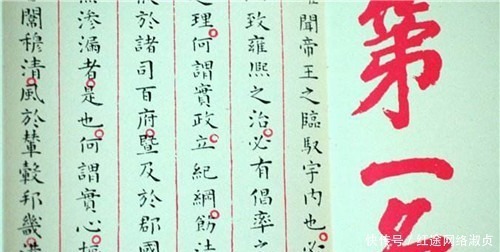 第一
聞帝王之臨馭宇內也必
致雍熙之治必有倡率之
之理何謂實政立紀綱飭法
於諸司百府暨及於郡國
無滲漏者是也何謂實心
穆清風於輦轂邦畿
快传号/红途网络淑贞